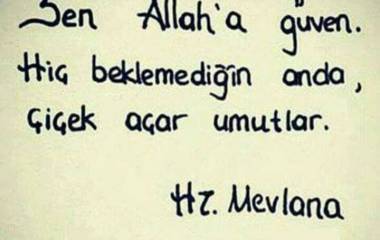 Sen Allah'a güven.
Hiç beklemediğin anda,
Çiçek açar umutlar.
Hz. Mevlana